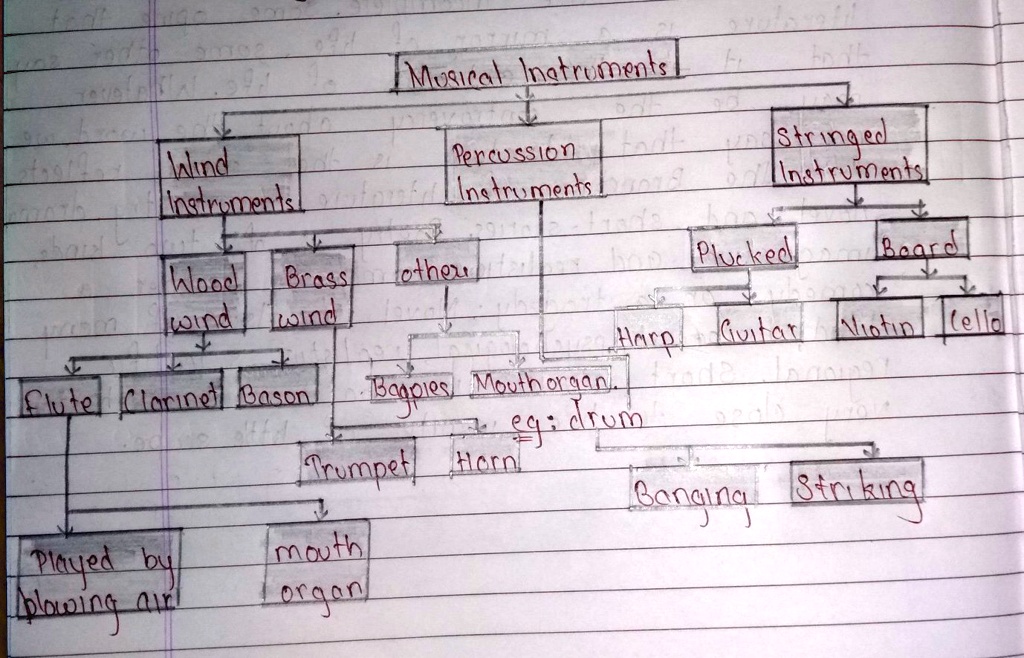 Musical Instruments
Wind
Instruments
Percussion
Instruments
Stringed
Instruments
Wood
wind
Brass
wind
other
Plucked
Board
Flute
Clarinet
Bason
Bagpies
Mouthorgan.
Harp
Guitar
Viotin
Cello
eg: drum
Trumpet
Horn
Banging
Striking
Played by
blowing air
mouth
organ